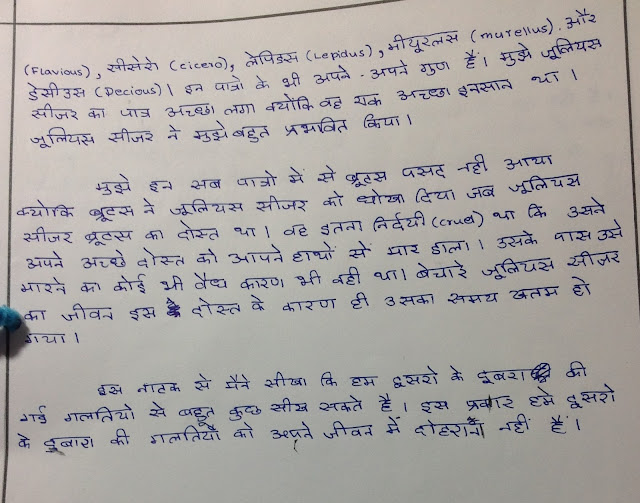 (Flavious), सीसेरो (cicero), लेपिडस (Lepidus), मीयूरलस (murellus). और
डेसीउस (Decious)। इन पात्रो के भी अपने - अपने गुण हैं। मुझे जूलियस
सीजर का पात्र अच्छा लगा क्योकि वह एक अच्छा इनसान था।
जूलियस सीजर ने मुझे बहुत प्रभावित किया।
मुझे इन सब पात्रो में से ब्रूटस पसद नही आया
क्योकि ब्रूटस ने जूलियस सीजर को धोखा दिया जब जूलियस
सीजर ब्रूटस का दोस्त था। वह इतना निर्दयी (cruel) था कि उसने
अपने अच्छे दोस्त को आपने हाथों से मार डाला। उसके पास उसे
मारने का कोई भी वैध कारण भी नही था। बेचारे जूलियस सीजर
का जीवन इस दोस्त के कारण ही उसका समय खतम हो
गया।
इस नाटक से मैंने सीखा कि हम दूसरो के दूबारा की
गई गलतियो से बहूत कुछ सीख सकते है। इस प्रकार हमे दूसरो
के दूबारा की गलतियाँ को अपने जीवन में दोहराना नहीं हैं।